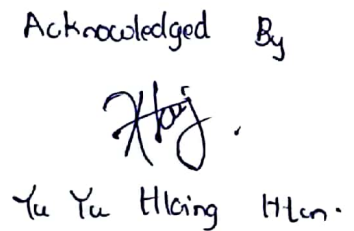 Acknowledged By
Yu Yu Hlaing Htun.